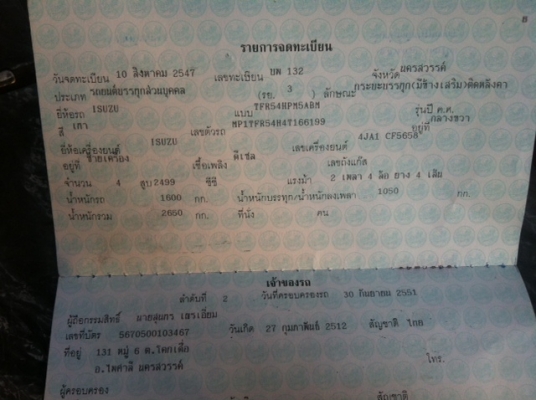 8
รายการจดทะเบียน
วันจดทะเบียน 10 สิงหาคม 2547 เลขทะเบียน ยพ 132 จังหวัด นครสวรรค์
ประเภท รถยนต์บรรทุกส่วนบุคคล (รย. 3 ) ลักษณะ กระบะบรรทุก(มีข้างเสริม)ติดตลิ่งคา
ยี่ห้อรถ ISUZU แบบ TFR54HPM5ABH รุ่นปี ค.ศ.
สี เทา เลขตัวรถ MP1TFR54H4T166199 อยู่ที่ กลางขวา
ยี่ห้อเครื่องยนต์ ISUZU เลขเครื่องยนต์ 4JA1 CF5658
อยู่ที่ ซ้ายเครื่อง เชื้อเพลิง ดีเซล เลขถังแก๊ส
จำนวน 4 สูบ 2499 ซีซี แรงม้า 2 เพลา 4 ล้อ ยาง 4 เส้น
น้ำหนักรถ 1600 กก. น้ำหนักบรรทุก/น้ำหนักลงเพลา 1050 กก.
น้ำหนักรวม 2650 กก. ที่นั่ง คน
เจ้าของรถ
ลำดับที่ 2 วันที่ครอบครองรถ 30 กันยายน 2551
ผู้ถือกรรมสิทธิ์ นายสุนทร
เลขที่บัตร 5670500103467 วันเกิด 27 กุมภาพันธ์ 2512 สัญชาติ ไทย
ที่อยู่ 131 หมู่ 6 ต.โคกเดื่อ
อ.ไพศาลี นครสวรรค์ โทร.
ผู้ครอบครอง
สัญชาติ